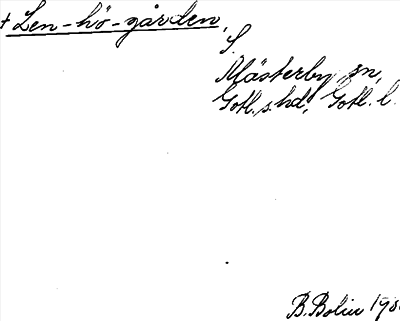 + Len-hö-gården,
S.
Mästerby sn,
Gotl. s. hd, Gotl. l.
B. Bolin